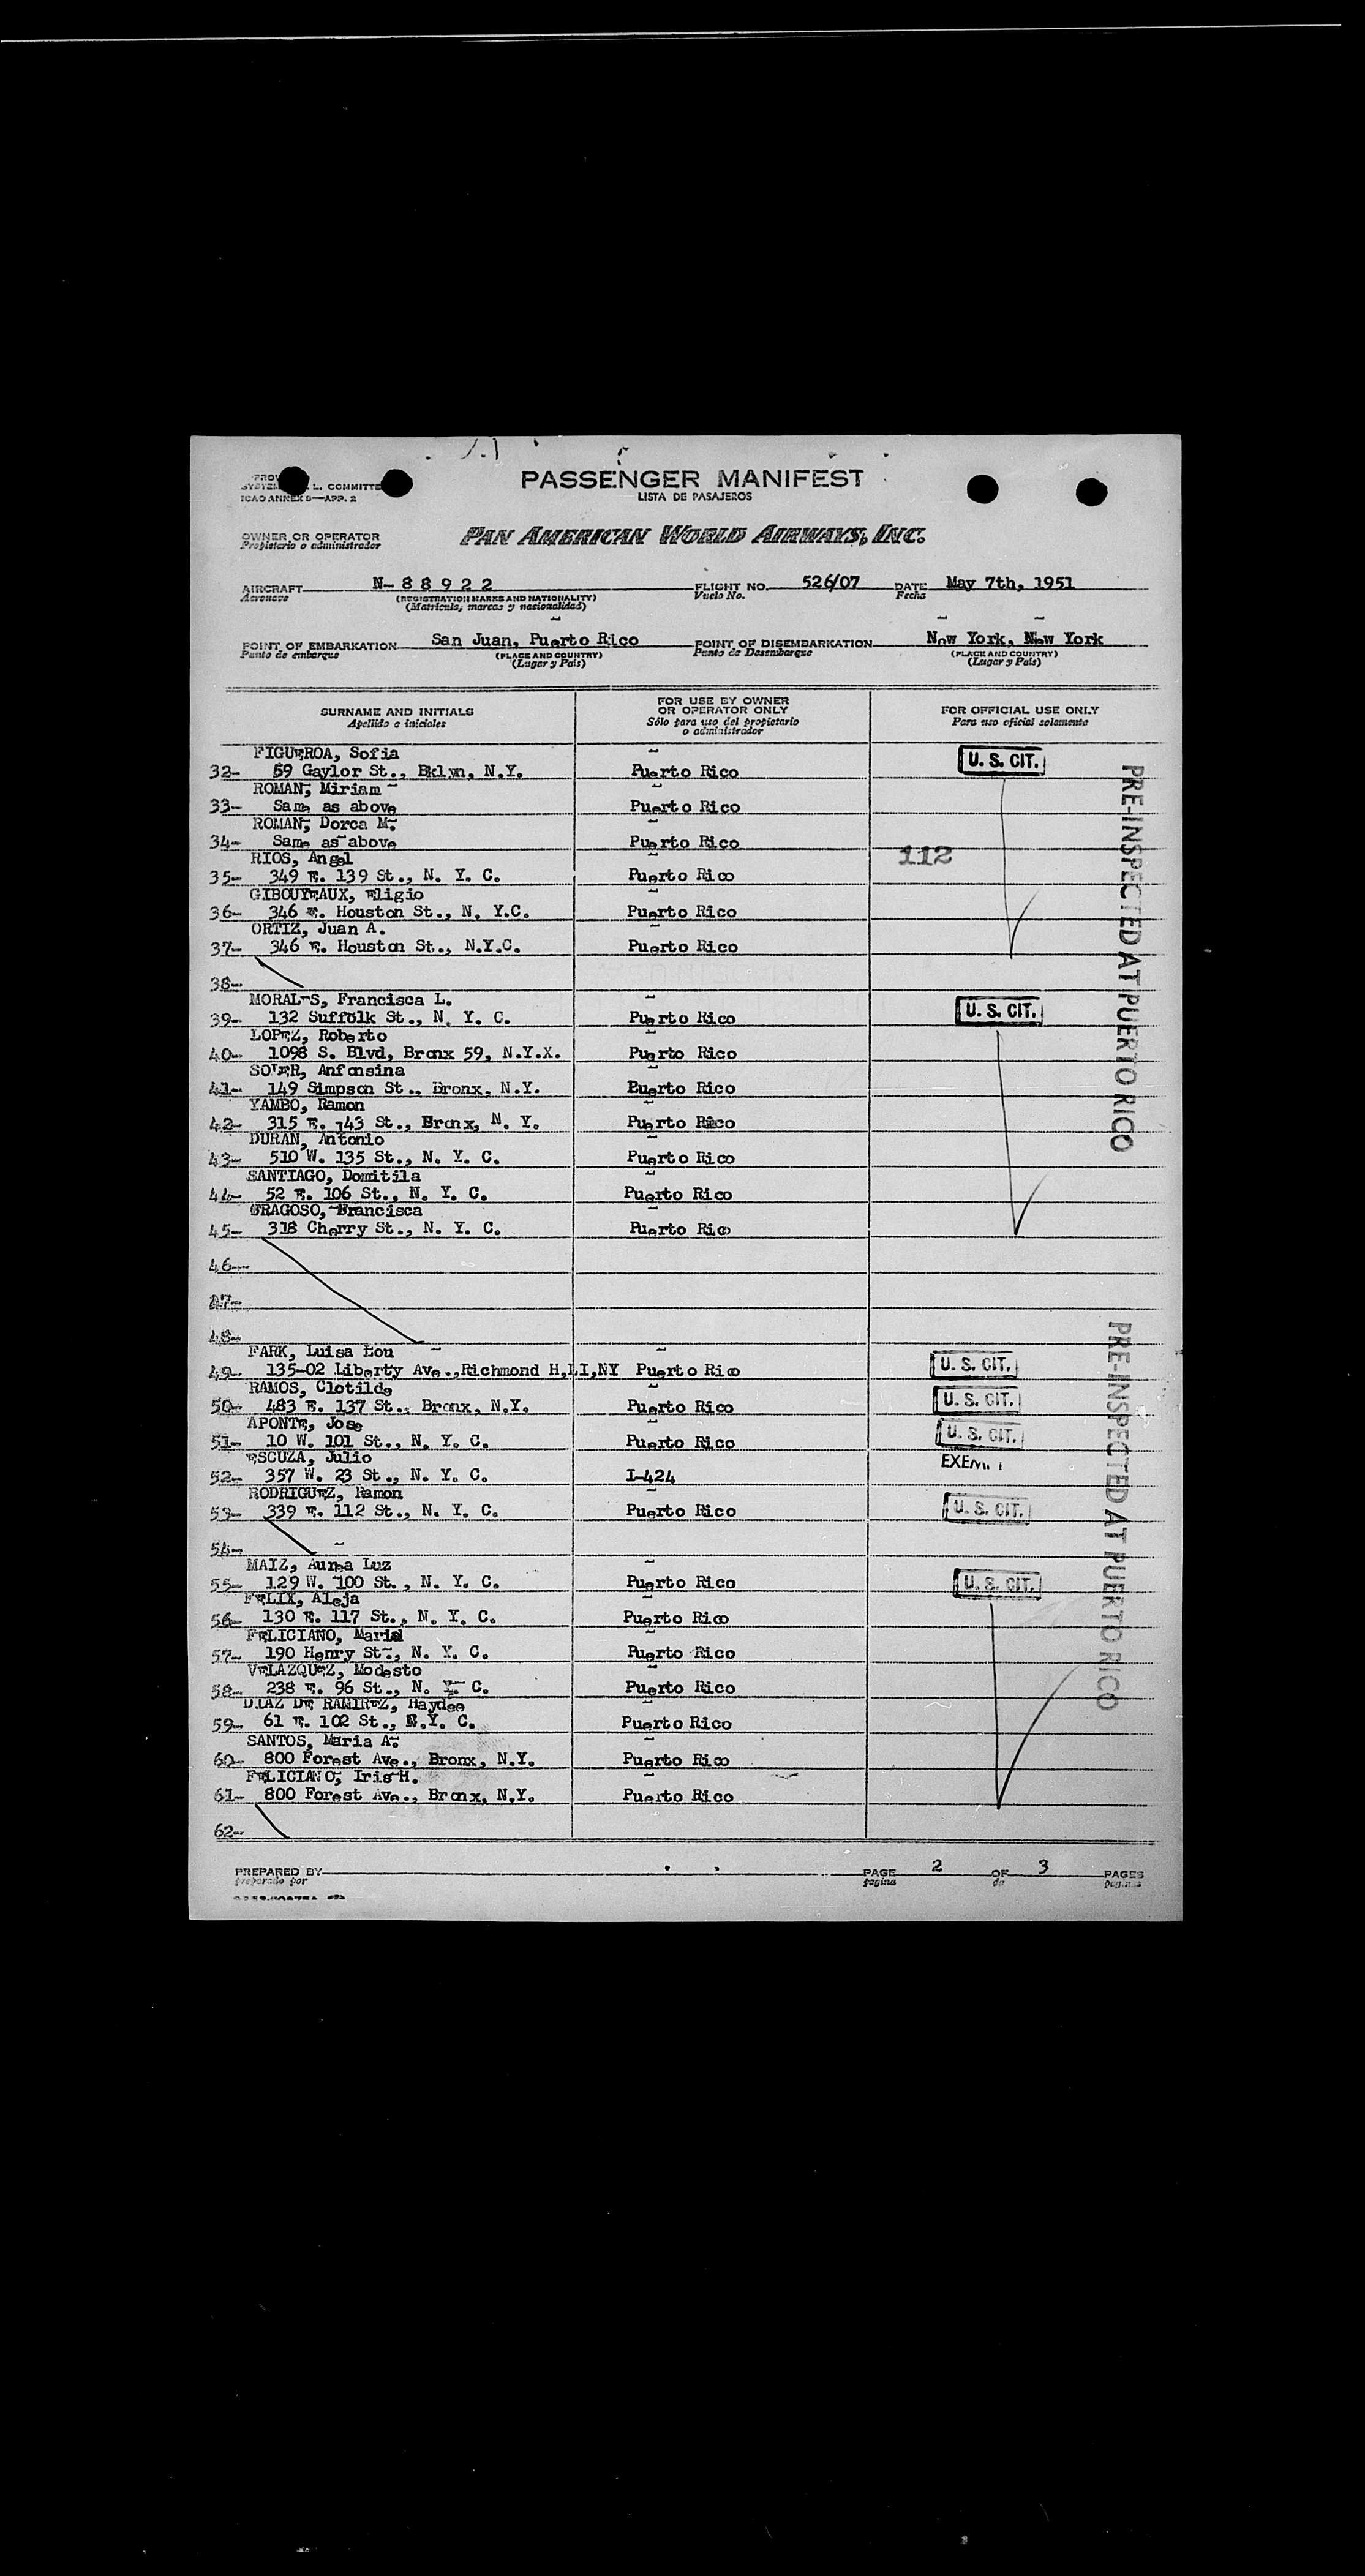 L. COMMITTE
ICAO ANNEX 9—APP. 2
PASSENGER MANIFEST
LISTA DE PASAJEROS
OWNER OR OPERATOR
Propietario o administrador
PAN AMERICAN WORLD AIRWAYS, INC.
AIRCRAFT N-88922 FLIGHT NO. 526/07 DATE May 7th, 1951
Aeronave (REGISTRATION MARKS AND NATIONALITY) Vuelo No. Fecha
(Matrícula, marcas y nacionalidad)
POINT OF EMBARKATION San Juan, Puerto Rico POINT OF DISEMBARKATION New York, New York
Punto de embarque (PLACE AND COUNTRY) Punto de Desembarque (PLACE AND COUNTRY)
(Lugar y País) (Lugar y País)
SURNAME AND INITIALS
Apellido e iniciales
FOR USE BY OWNER
OR OPERATOR ONLY
Sólo para uso del propietario
o administrador
FOR OFFICIAL USE ONLY
Para uso oficial solamente
FIGUEROA, Sofia
32- 59 Gaylor St., Bklyn, N.Y. Puerto Rico U. S. CIT.
ROMAN, Miriam
33- Same as above Puerto Rico
ROMAN, Dorca M.
34- Same as above Puerto Rico
RIOS, Angel 112
35- 349 E. 139 St., N. Y. C. Puerto Rico
GIBOUYEAUX, Eligio
36- 346 E. Houston St., N. Y.C. Puerto Rico
ORTIZ, Juan A.
37- 346 E. Houston St., N.Y.C. Puerto Rico
38-
MORALES, Francisca L.
39- 132 Suffolk St., N. Y. C. Puerto Rico U. S. CIT.
LOPEZ, Roberto
40- 1098 S. Blvd, Bronx 59, N.Y.X. Puerto Rico
Anfonsina
41- 149 Simpson St., Bronx, N.Y. Puerto Rico
YAMBO, Ramon
42- 315 E. 143 St., Bronx, N. Y. Puerto Rico
DURAN, Antonio
43- 510 W. 135 St., N. Y. C. Puerto Rico
SANTIAGO, Domitila
44- 52 E. 106 St., N. Y. C. Puerto Rico
FRAGOSO, Francisca
45- 318 Cherry St., N. Y. C. Puerto Rico
46-
47-
48-
FARK, Luisa Lou
49- 135-02 Liberty Ave.,Richmond H,LI,NY Puerto Rico U. S. CIT.
RAMOS, Clotilde
50- 483 E. 137 St., Bronx, N.Y. Puerto Rico U. S. CIT.
APONTE, Jose
51- 10 W. 101 St., N. Y. C. Puerto Rico U. S. CIT.
ESCUZA, Julio
52- 357 W. 23 St., N. Y. C. I-424 EXEMPT
RODRIGUEZ, Ramon
53- 339 E. 112 St., N. Y. C. Puerto Rico U. S. CIT.
54-
MAIZ, Aurea Luz
55- 129 W. 100 St., N. Y. C. Puerto Rico U. S. CIT.
FELIX, Aleja
56- 130 E. 117 St., N. Y. C. Puerto Rico
FELICIANO, Maria
57- 190 Henry St., N. Y. C. Puerto Rico
VELAZQUEZ, Modesto
58- 238 E. 96 St., N. Y. C. Puerto Rico
DIAZ DE RAMIREZ, Haydee
59- 61 E. 102 St., N.Y. C. Puerto Rico
SANTOS, Maria A.
60- 800 Forest Ave., Bronx, N.Y. Puerto Rico
FELICIANO, Iris H.
61- 800 Forest Ave., Bronx, N.Y. Puerto Rico
62-
PRE-INSPECTED AT PUERTO RICO
PRE-INSPECTED AT PUERTO RICO
PREPARED BY PAGE 2 OF 3 PAGES
preparado por pagina de paginas